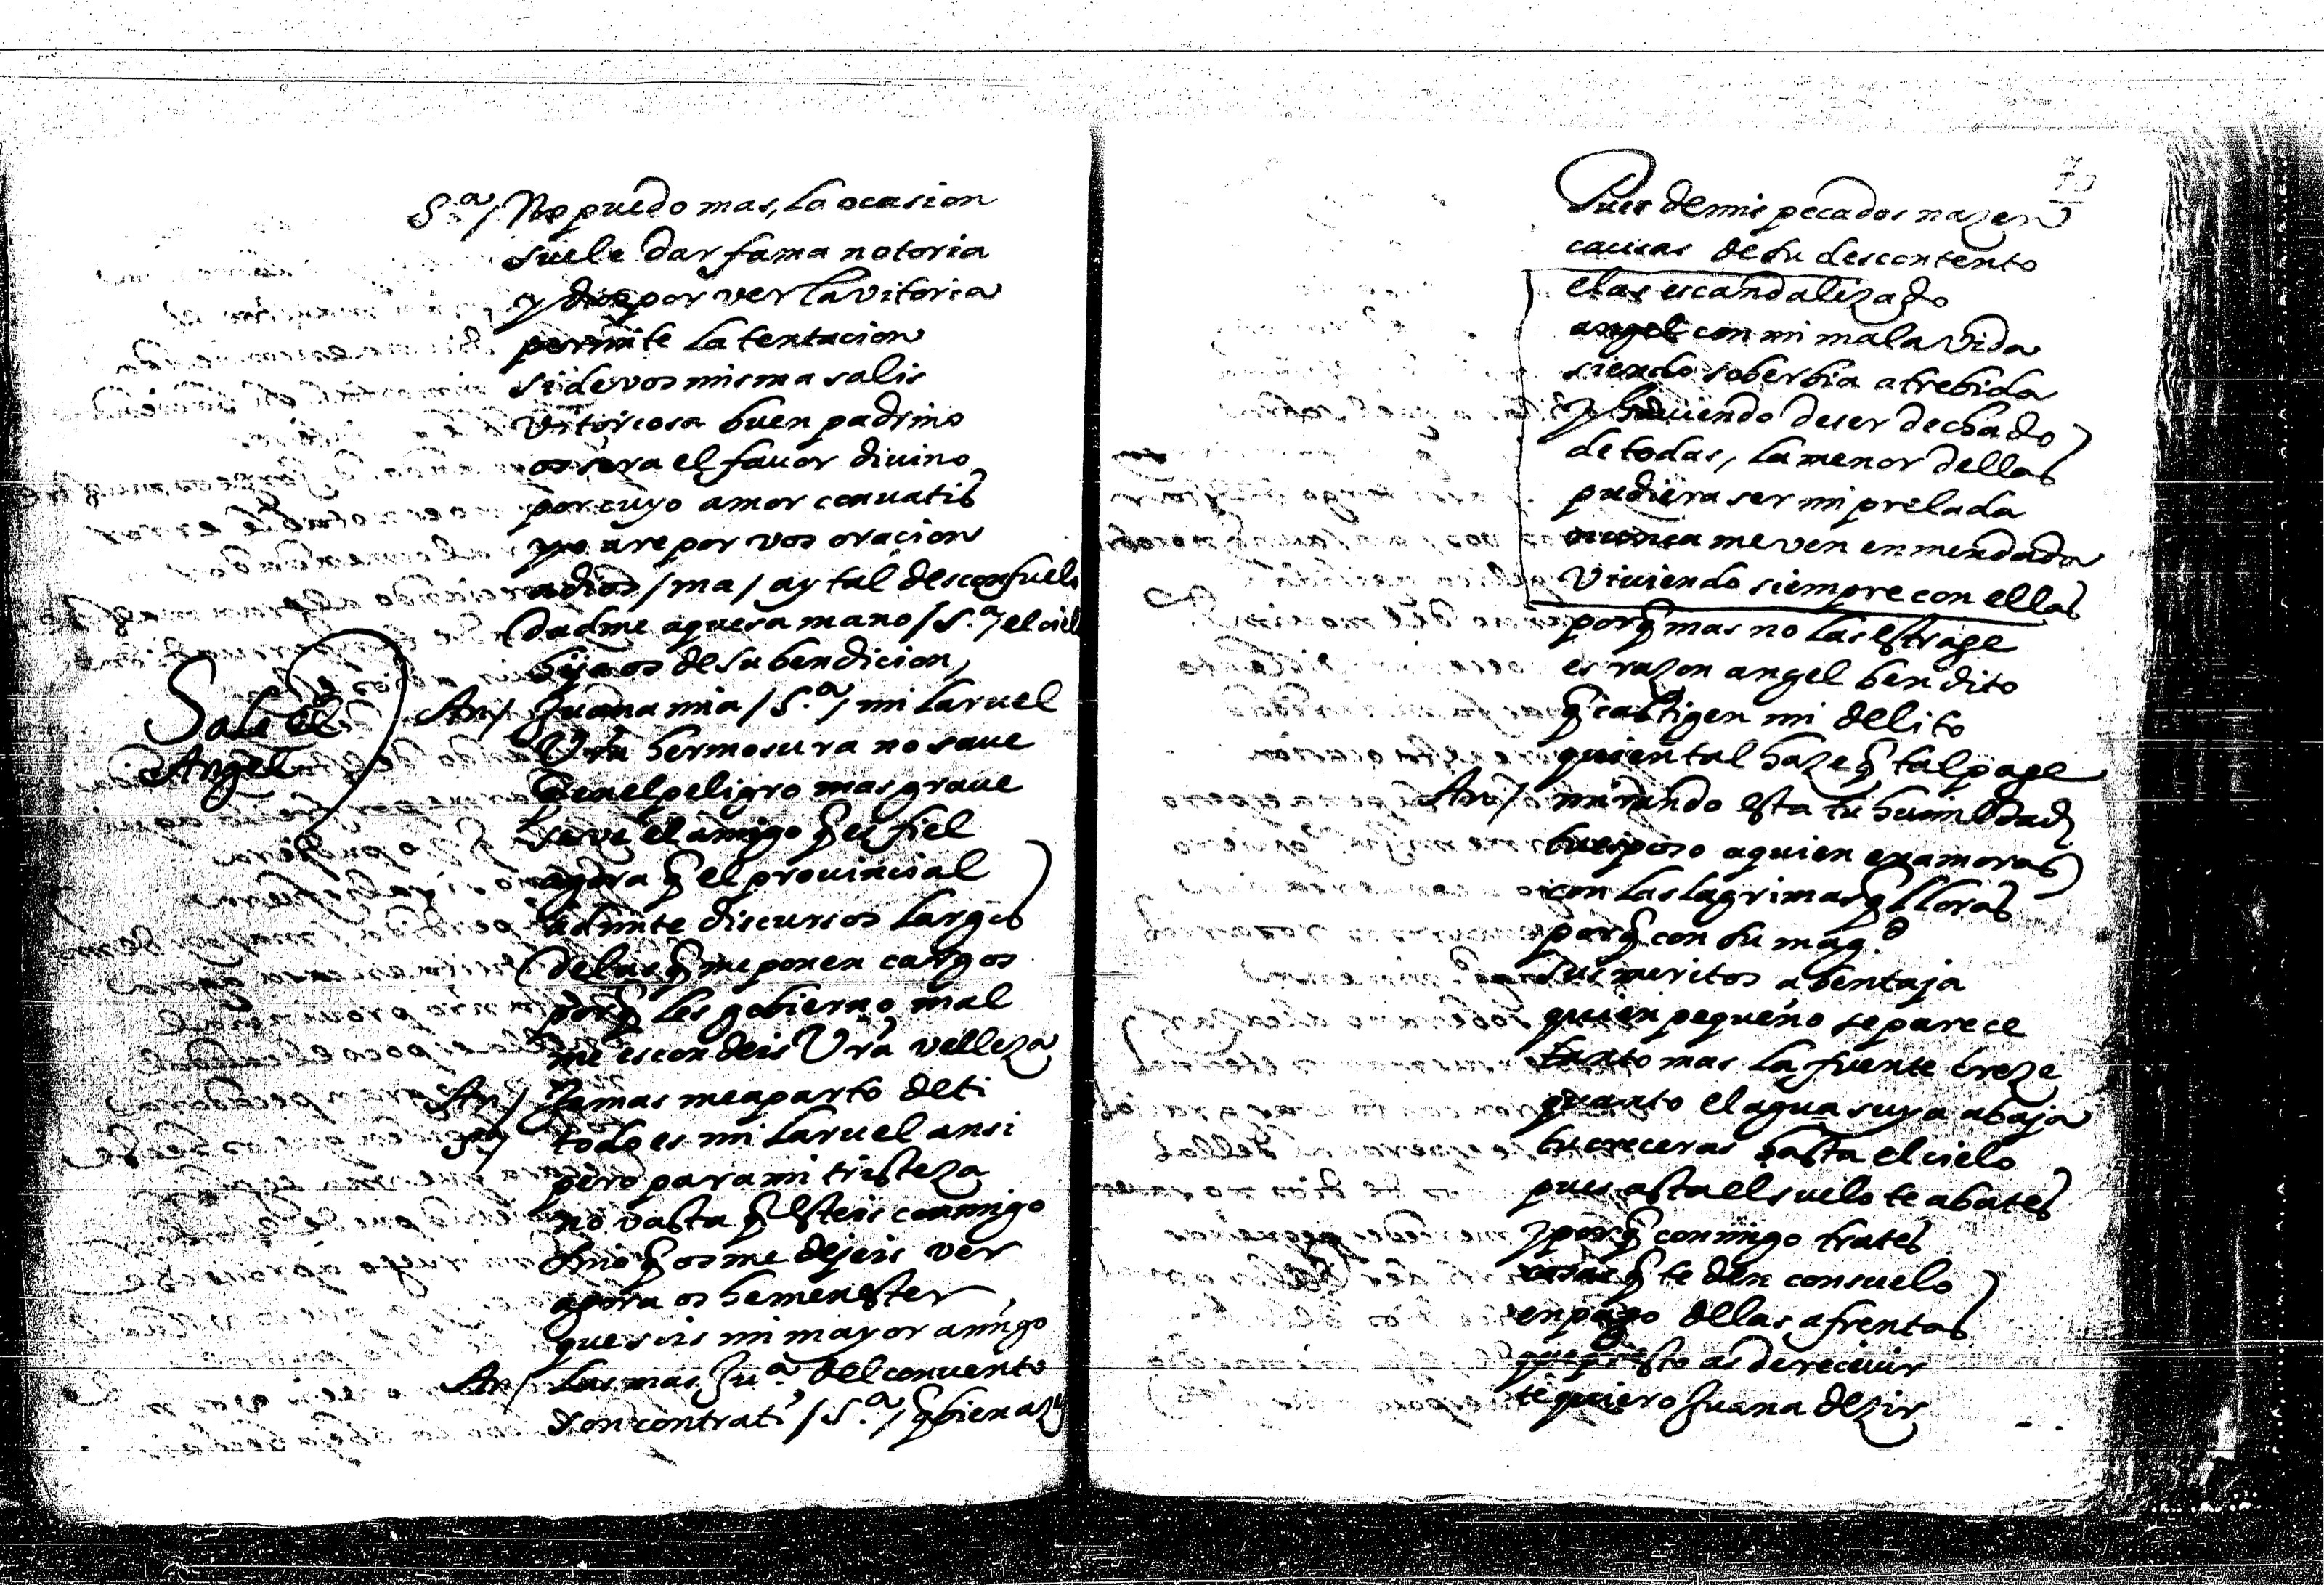 S.a / No puedo mas, la ocasion
suele dar fama notoria
y dios por ver la vitoria
permite la tentacion
si de vos misma salis
vitoriosa buen padrino
os sera el fauor diuino
por cuyo amor convatis
yo are por vos oracion
adios / ma / ay tal desconsuelo
dadme aquesa mano / S.a / el ciel
hija os de su bendicion
Sale el
Angel
An / Juana mia / S.a / mi laruel
Vra hermosura no saue
q en el peligro mas graue
se ve el amigo q es fiel
agora q el prouincial
admite discursos largos
de las q me ponen cargos
porq les gobierno mal
me escondeis Vra velleza
An / Jamas me aparto de ti
Sa / todo es mi laruel ansi
pero para mi tristeza
no vasta q esteis conmigo
sino q os me dejeis ver
agora os he menester
que sois mi mayor amigo
An / las mas Jua del conuento
son contra ti / S.a / q bien azen
70
Pues de mis pecados nazen
causas de su descontento
elas escandalizado
angel con mi mala vida
siendo soberbia atrebida
y hauiendo de ser dechado
de todas, la menor dellas
pudiera ser mi prelada
nunca me ven enmendada
viuiendo siempre con ellas
porq mas no las estrage
es razon angel bendito
q castigen mi delito
quien tal haze q tal page
An / mirando esta tu humildad
tu esposo a quien enamoras
con las lagrimas q lloras
porq con su mag.d
sus meritos abentaja
quien pequeño se parece
tanto mas la fuente creze
quanto el agua suya abaja
tu creceras hasta el cielo
pues asta el suelo te abates
y porq conmigo trates
cosas q te den consuelo
en pago dellas afrentas
que presto as de reciuir
te quiero Juana dezir